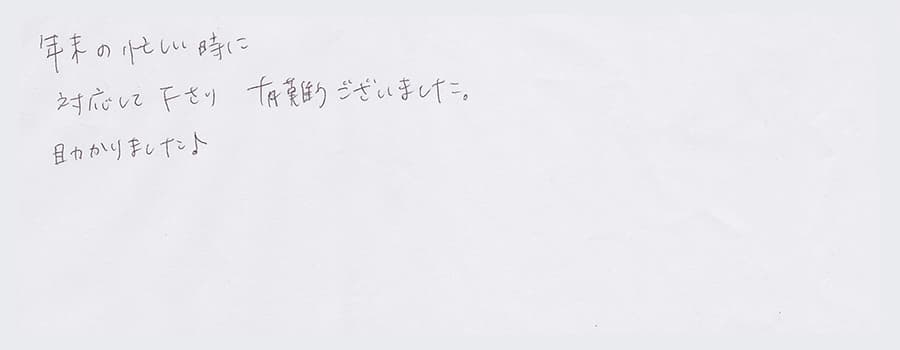 年末の忙しい時に
対応して下さり 有難うございました。
助かりました♪